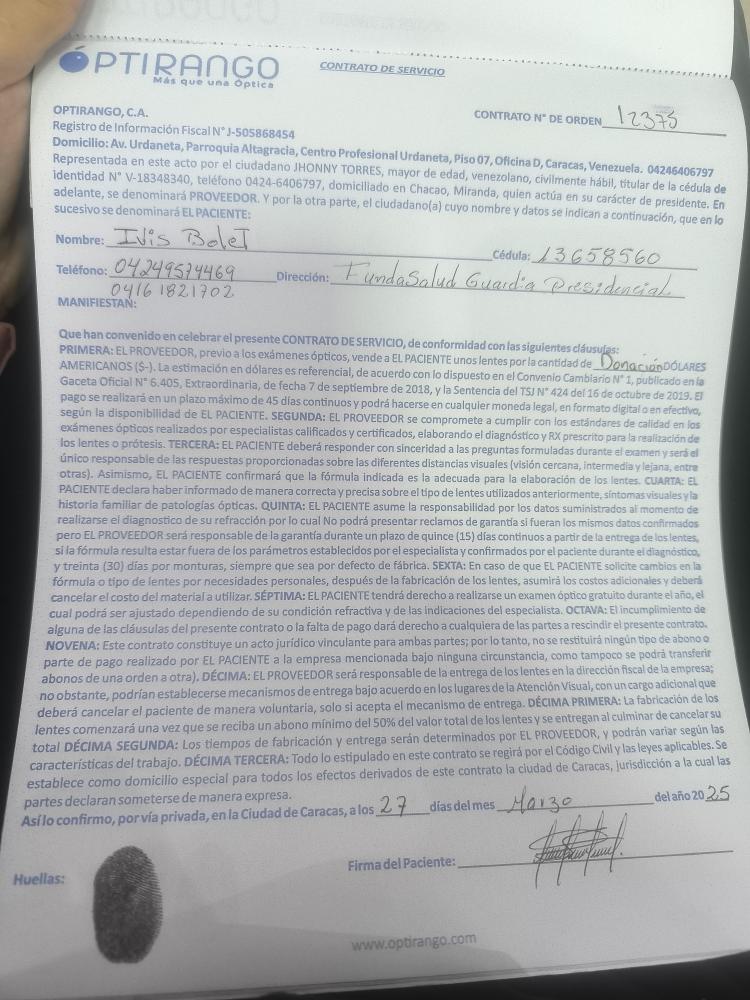 ÓPTIRANGO
Más que una Óptica
CONTRATO DE SERVICIO
OPTIRANGO, C.A.
CONTRATO N° DE ORDEN 12375
Registro de Información Fiscal N° J-505868454
Domicilio: Av. Urdaneta, Parroquia Altagracia, Centro Profesional Urdaneta, Piso 07, Oficina D, Caracas, Venezuela. 04246406797
Representada en este acto por el ciudadano JHONNY TORRES, mayor de edad, venezolano, civilmente hábil, titular de la cédula de
identidad N° V-18348340, teléfono 0424-6406797, domiciliado en Chacao, Miranda, quien actúa en su carácter de presidente. En
adelante, se denominará PROVEEDOR. Y por la otra parte, el ciudadano(a) cuyo nombre y datos se indican a continuación, que en lo
sucesivo se denominará EL PACIENTE:
Nombre: Ivis Bolet Cédula: 13658560
Teléfono: 04249574469 Dirección: FundaSalud Guardia Presidencial
04161821702
MANIFIESTAN:
Que han convenido en celebrar el presente CONTRATO DE SERVICIO, de conformidad con las siguientes cláusulas:
PRIMERA: EL PROVEEDOR, previo a los exámenes ópticos, vende a EL PACIENTE unos lentes por la cantidad de Donación DÓLARES
AMERICANOS ($-). La estimación en dólares es referencial, de acuerdo con lo dispuesto en el Convenio Cambiario N° 1, publicado en la
Gaceta Oficial N° 6.405, Extraordinaria, de fecha 7 de septiembre de 2018, y la Sentencia del TSJ N° 424 del 16 de octubre de 2019. El
pago se realizará en un plazo máximo de 45 días continuos y podrá hacerse en cualquier moneda legal, en formato digital o en efectivo,
según la disponibilidad de EL PACIENTE. SEGUNDA: EL PROVEEDOR se compromete a cumplir con los estándares de calidad en los
exámenes ópticos realizados por especialistas calificados y certificados, elaborando el diagnóstico y RX prescrito para la realización de
los lentes o prótesis. TERCERA: EL PACIENTE deberá responder con sinceridad a las preguntas formuladas durante el examen y será el
único responsable de las respuestas proporcionadas sobre las diferentes distancias visuales (visión cercana, intermedia y lejana, entre
otras). Asimismo, EL PACIENTE confirmará que la fórmula indicada es la adecuada para la elaboración de los lentes. CUARTA: EL
PACIENTE declara haber informado de manera correcta y precisa sobre el tipo de lentes utilizados anteriormente, síntomas visuales y la
historia familiar de patologías ópticas. QUINTA: EL PACIENTE asume la responsabilidad por los datos suministrados al momento de
realizarse el diagnostico de su refracción por lo cual No podrá presentar reclamos de garantía si fueran los mismos datos confirmados
pero EL PROVEEDOR será responsable de la garantía durante un plazo de quince (15) días continuos a partir de la entrega de los lentes,
si la fórmula resulta estar fuera de los parámetros establecidos por el especialista y confirmados por el paciente durante el diagnóstico,
y treinta (30) días por monturas, siempre que sea por defecto de fábrica. SEXTA: En caso de que EL PACIENTE solicite cambios en la
fórmula o tipo de lentes por necesidades personales, después de la fabricación de los lentes, asumirá los costos adicionales y deberá
cancelar el costo del material a utilizar. SÉPTIMA: EL PACIENTE tendrá derecho a realizarse un examen óptico gratuito durante el año, el
cual podrá ser ajustado dependiendo de su condición refractiva y de las indicaciones del especialista. OCTAVA: El incumplimiento de
alguna de las cláusulas del presente contrato o la falta de pago dará derecho a cualquiera de las partes a rescindir el presente contrato.
NOVENA: Este contrato constituye un acto jurídico vinculante para ambas partes; por lo tanto, no se restituirá ningún tipo de abono o
parte de pago realizado por EL PACIENTE a la empresa mencionada bajo ninguna circunstancia, como tampoco se podrá transferir
abonos de una orden a otra). DÉCIMA: EL PROVEEDOR será responsable de la entrega de los lentes en la dirección fiscal de la empresa;
no obstante, podrían establecerse mecanismos de entrega bajo acuerdo en los lugares de la Atención Visual, con un cargo adicional que
deberá cancelar el paciente de manera voluntaria, solo si acepta el mecanismo de entrega. DÉCIMA PRIMERA: La fabricación de los
lentes comenzará una vez que se reciba un abono mínimo del 50% del valor total de los lentes y se entregan al culminar de cancelar su
total DÉCIMA SEGUNDA: Los tiempos de fabricación y entrega serán determinados por EL PROVEEDOR, y podrán variar según las
características del trabajo. DÉCIMA TERCERA: Todo lo estipulado en este contrato se regirá por el Código Civil y las leyes aplicables. Se
establece como domicilio especial para todos los efectos derivados de este contrato la ciudad de Caracas, jurisdicción a la cual las
partes declaran someterse de manera expresa.
Así lo confirmo, por vía privada, en la Ciudad de Caracas, a los 27 días del mes Marzo del año 2025
Huellas:
Firma del Paciente:
www.optirango.com